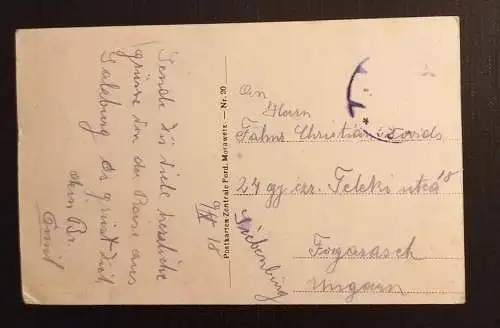 Sende dir viele herzliche
grüsse von der Reise aus
Salzburg Es grüst dich
dein Br.
Emil
9/V 18
Postkarten-Zentrale Ferd. Morawetz. — Nr. 30
An
Herrn
Fahns Christian
24 gy. ezr. Teleki utca 18
Fogarasch
Siebenbürg
Ungarn